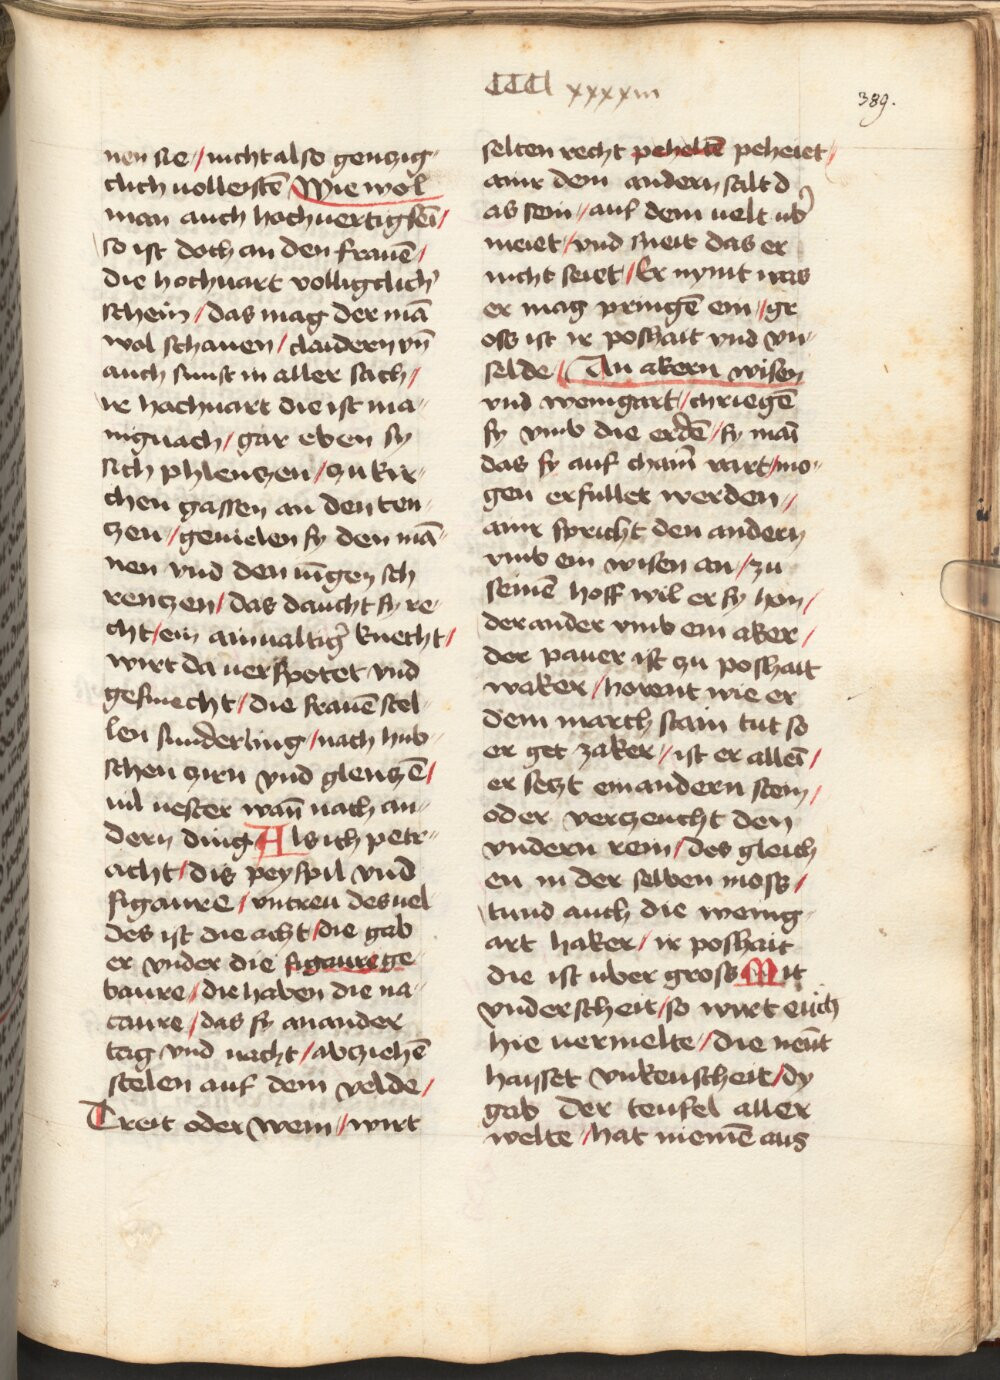 CCCl xxxxiii
389.
nen sie / nicht also genczig
clich vollenstē Wie wol
man auch hochuertig sei /
so ist doch an den frauē /
die hochuart volligclich
schein / das mag der mā
wol schauen / claidern vn̄
auch sunst in aller sach /
ir hachuart die ist ma
niguach / gar eben sy
sich phlenczen / zu kir
chen gassen an den ten
czen / geuielen sy den mā
nen vnd den iūgen sch
renczen / das daucht sy re
cht / ein ainualtig' knecht /
wirt da uerspotet vnd
gesmecht / die frauē stel
len sunderling / nach hub
schen zirn vnd glenczē /
vil uester wan̄ nach an
dern ding Als ich petr
acht / dis peyspil vnd
figaure / vntreu des uel
des ist die acht / die gab
er vnder die figaure ge
baure / die haben die na
taure / das sy anander
tag vnd nacht / abziehē
stelen auf dem velde /
Treit oder wein // wirt
selten recht peheltē peheiet /
ainr dem andern stilt d
as sein // auf dem velt ub'
meiet / vnd sneit das er
nicht seiet / Er nymt was
er mag pringē ein // gr
oss ist ir poshait vnd vn
selde / An akern wisen
vnd weingart / chriegē
sy vmb die erdē / sy mai
das sy auf chain' vart / mo
gen erfullet werden //
ainr spricht den andern
vmb ein wisen an / zu
seinē hoff wil er sy hon /
der ander vmb ein aker /
der pauer ist zu poshait
waker / horent wie er
dem march stain tut so
er get zaker // ist er allei /
er seczt ein andern stein /
oder verczeucht den
vndern rein / des gleich
en in der selben moss /
tund auch die weing
art haker / ir poshait
die ist uber gross Mit
vnderscheit / so wirt euch
hie uermelte / die neūt
haysset vnkeuscheit / dy
gab der teufel aller
welte / hat niemē aus